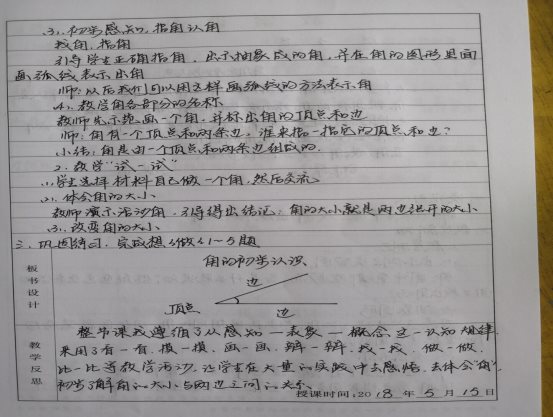 3、初步感知，指角认角
找角，指角
引导学生正确指角，出示抽象成的角，并在角的图形里面
画弧线表示出角
师：以后我们可以用这样画弧线的方法表示角
4、教学角各部分的名称
教师先示范画一个角，并标出角的顶点和边
师：角有一个顶点和两条边，谁来指一指它的顶点和边？
小结：角是由一个顶点和两条边组成的。
2、教学“试一试”
(1)学生选择材料自己做一个角，然后交流
(2)体会角的大小
教师演示活动角，引导得出结论：角的大小就是两边张开的大小
(3)改变角的大小
三、巩固练习，完成想想做做1~5题
板书设计
角的初步认识
边
顶点
边
教学反思
整节课我遵循了从感知—表象—概念这一认知规律
采用了看一看、摸一摸、画一画、辨一辨、找一找、做一做、
比一比等教学活动，让学生在大量的实践中去感悟、去体会角，
初步了解角的大小与两边之间的关系。
授课时间：2018年5月15日